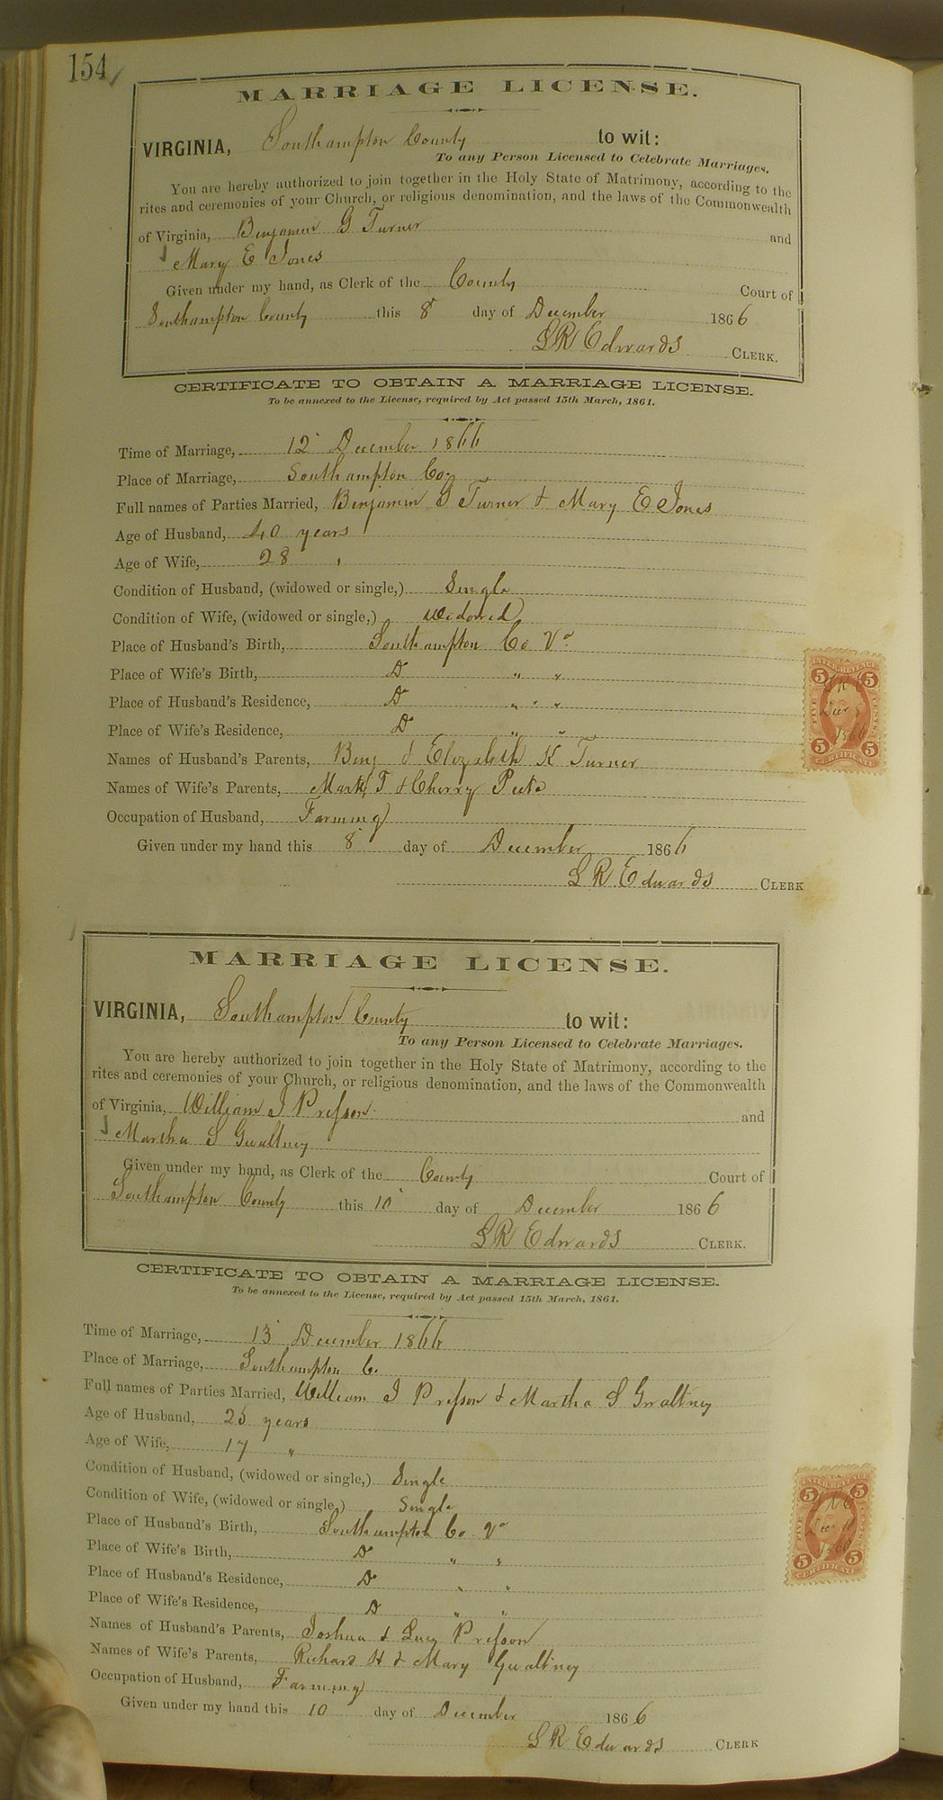 154
MARRIAGE LICENSE.
VIRGINIA, Southampton County to wit:
To any Person Licensed to Celebrate Marriages.
You are hereby authorized to join together in the Holy State of Matrimony, according to the
rites and ceremonies of your Church, or religious denomination, and the laws of the Commonwealth
of Virginia, Benjamin G Turner and
Mary E Jones
Given under my hand, as Clerk of the County Court of
Southampton County this 8 day of December 1866
LR Edwards CLERK.
CERTIFICATE TO OBTAIN A MARRIAGE LICENSE.
To be annexed to the License, required by Act passed 15th March, 1861.
Time of Marriage, 12 December 1866
Place of Marriage, Southampton Co
Full names of Parties Married, Benjamin G Turner & Mary E Jones
Age of Husband, 40 years
Age of Wife, 28 "
Condition of Husband, (widowed or single,) Single
Condition of Wife, (widowed or single,) Widowed
Place of Husband's Birth, Southampton Co Va
Place of Wife's Birth, Do " "
Place of Husband's Residence, Do " " "
Place of Wife's Residence, Do " "
Names of Husband's Parents, Benj & Elizabeth K Turner
Names of Wife's Parents, Mark T & Cherry
Occupation of Husband, Farming
Given under my hand this 8 day of December 1866
LR Edwards CLERK
INTER. REVENUE
5 5
FIVE CENTS
LRE
Dec 8
1866
5 5
CERTIFICATE
MARRIAGE LICENSE.
VIRGINIA, Southampton County to wit:
To any Person Licensed to Celebrate Marriages.
You are hereby authorized to join together in the Holy State of Matrimony, according to the
rites and ceremonies of your Church, or religious denomination, and the laws of the Commonwealth
of Virginia, William J Presson and
Martha S Gwaltney
Given under my hand, as Clerk of the County Court of
Southampton County this 10 day of December 1866
LR Edwards CLERK.
CERTIFICATE TO OBTAIN A MARRIAGE LICENSE.
To be annexed to the License, required by Act passed 15th March, 1861.
Time of Marriage, 13 December 1866
Place of Marriage, Southampton Co
Full names of Parties Married, William J Presson & Martha S Gwaltney
Age of Husband, 25 years
Age of Wife, 17 "
Condition of Husband, (widowed or single,) Single
Condition of Wife, (widowed or single,) Single
Place of Husband's Birth, Southampton Co Va
Place of Wife's Birth, Do " "
Place of Husband's Residence, Do " "
Place of Wife's Residence, Do " "
Names of Husband's Parents, Joshua & Lucy Presson
Names of Wife's Parents, Richard H & Mary Gwaltney
Occupation of Husband, Farming
Given under my hand this 10 day of December 1866
LR Edwards CLERK
5 5
Dec 10
1866
5 5
CERTIFICATE